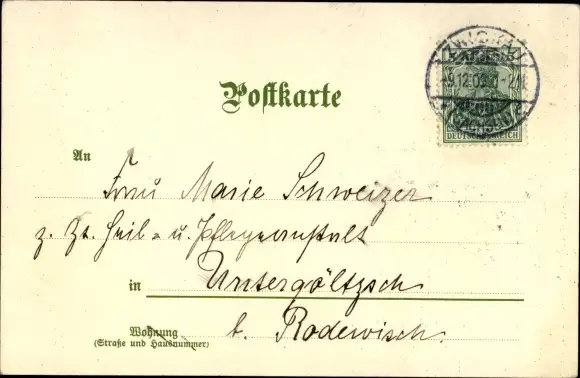 ZWICKAU
9.12.03.
SACHSEN
DEUTSCHES REICH
Postkarte
An
Frau Marie Schweizer
z. Zt. Heil- u. Pflegeanstalt
in Untergöltzsch
Wohnung b. Rodewisch.
(Straße und Hausnummer)